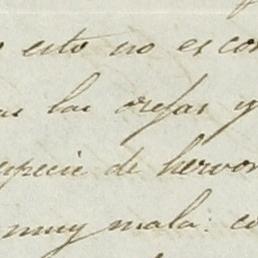 esto no es con
las orejas y
especie de hervor
muy mala: co